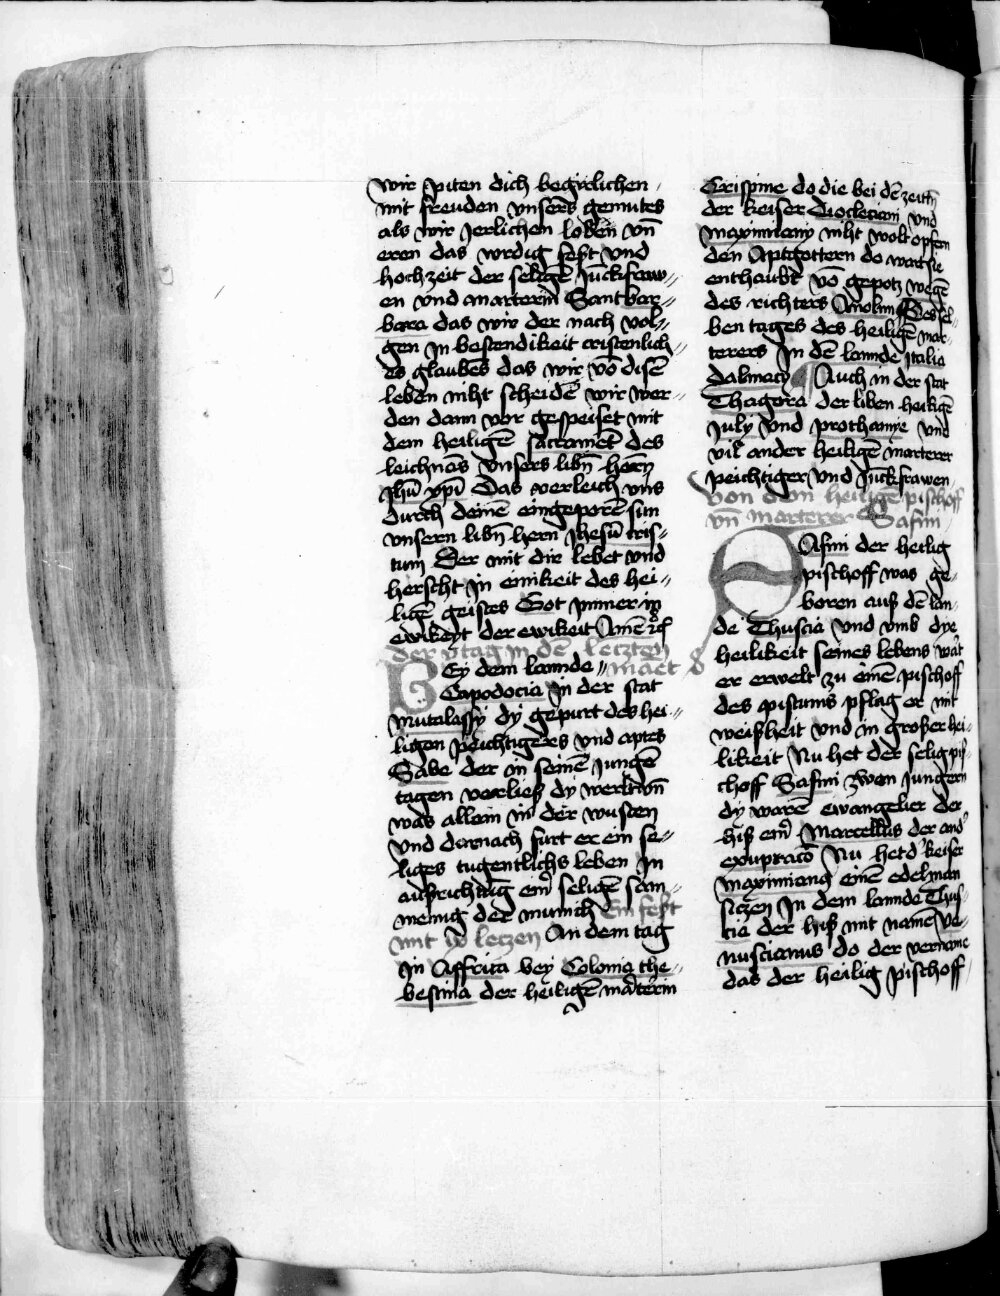 wir piten dich begirlichen
mit freuden vnsers gemutes
als wir Jerlichen loben vn̄
eren das wirdig fest vnd
hochzeit der seligē Jūckfraw⸗
en vnd marterin Sant bar⸗
bara das wir der nach vol⸗
gen Jn bestendikeit cristenlich⸗
es glaubes das wir vō disē
leben niht scheidē wir wer⸗
den dann vor gespeiset mit
dem heiligē sacramēt des
leichnās vnsers libn̄ hern
Jhū xpī Das verleich vns
durch deinē eingeporē sun
vnsern libn̄ hern Jhesū cris⸗
tum Der mit dir lebet vnd
herscht in einikeit des hei⸗
ligē geistes Got ymmer in
ewikeyt der ewikeit Amē
der v tag in dē leczten
BEy dem lannde⸗ maet
Capodocia in der stat
mutalassy dy gepurt des hei⸗
ligen peichtigers vnd aptes
Sabe der in seinē Jungē
tagen verließ dy werlt vn̄
was allein in der wusten
vnd darnach furt er ein se⸗
liges tugentlichs leben Jn
aufrichtūg eīn seligē sam⸗
menūg der munich Ein fest
mit leczen An dem tag
in Affrica bey Colonia the⸗
bestina der heiligē māterin
Crispine do die bei dē zeitn̄
der keiser Diocleciani vnd
maximiany niht wolt opfern
den Aptgottern do wart sie
enthaubt vō gepotz wegē
des richters Anolini Des sel⸗
ben tages des heiligē mar⸗
terers Jn dē lannde Italia
dalmacy Auch in der stat
Thagora der liben heiligē
July vnd prothamye vnd
vil ander heiligē marterer
peichtiger vnd Jūckfrawen
Von dem heiligē pischoff
vn̄ marterer Safini
SAfini der heilig
pischoff was ge⸗
boren auß dē lan⸗
de Thuscia vnd vmb dye
heilikeit seines lebens wat
er erwelt zu einē pischoff
des pistums pflag er mit
weißheit vnd in großer hei⸗
likeit Nu het der selig pis⸗
choff Safini zwen Jungern
dy warē ewangelier der
hiß eīn Marcellus der and
exupraciō Nu het d keiser
maximiang einē edelman
siczen Jn dem lannde Thus⸗
cia der hiß mit namē Ve⸗
nuscianus do der vername
das der heilig pischoff